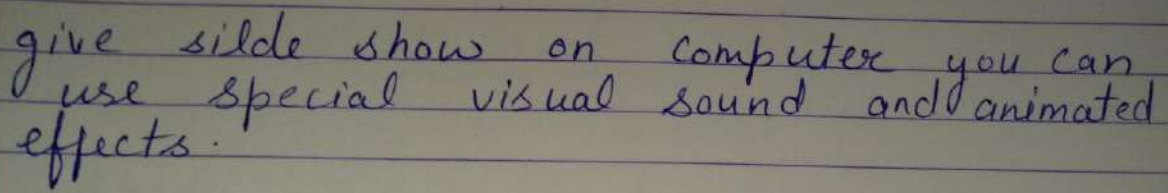 give silde show on computer you can
use special visual sound and animated
effects.